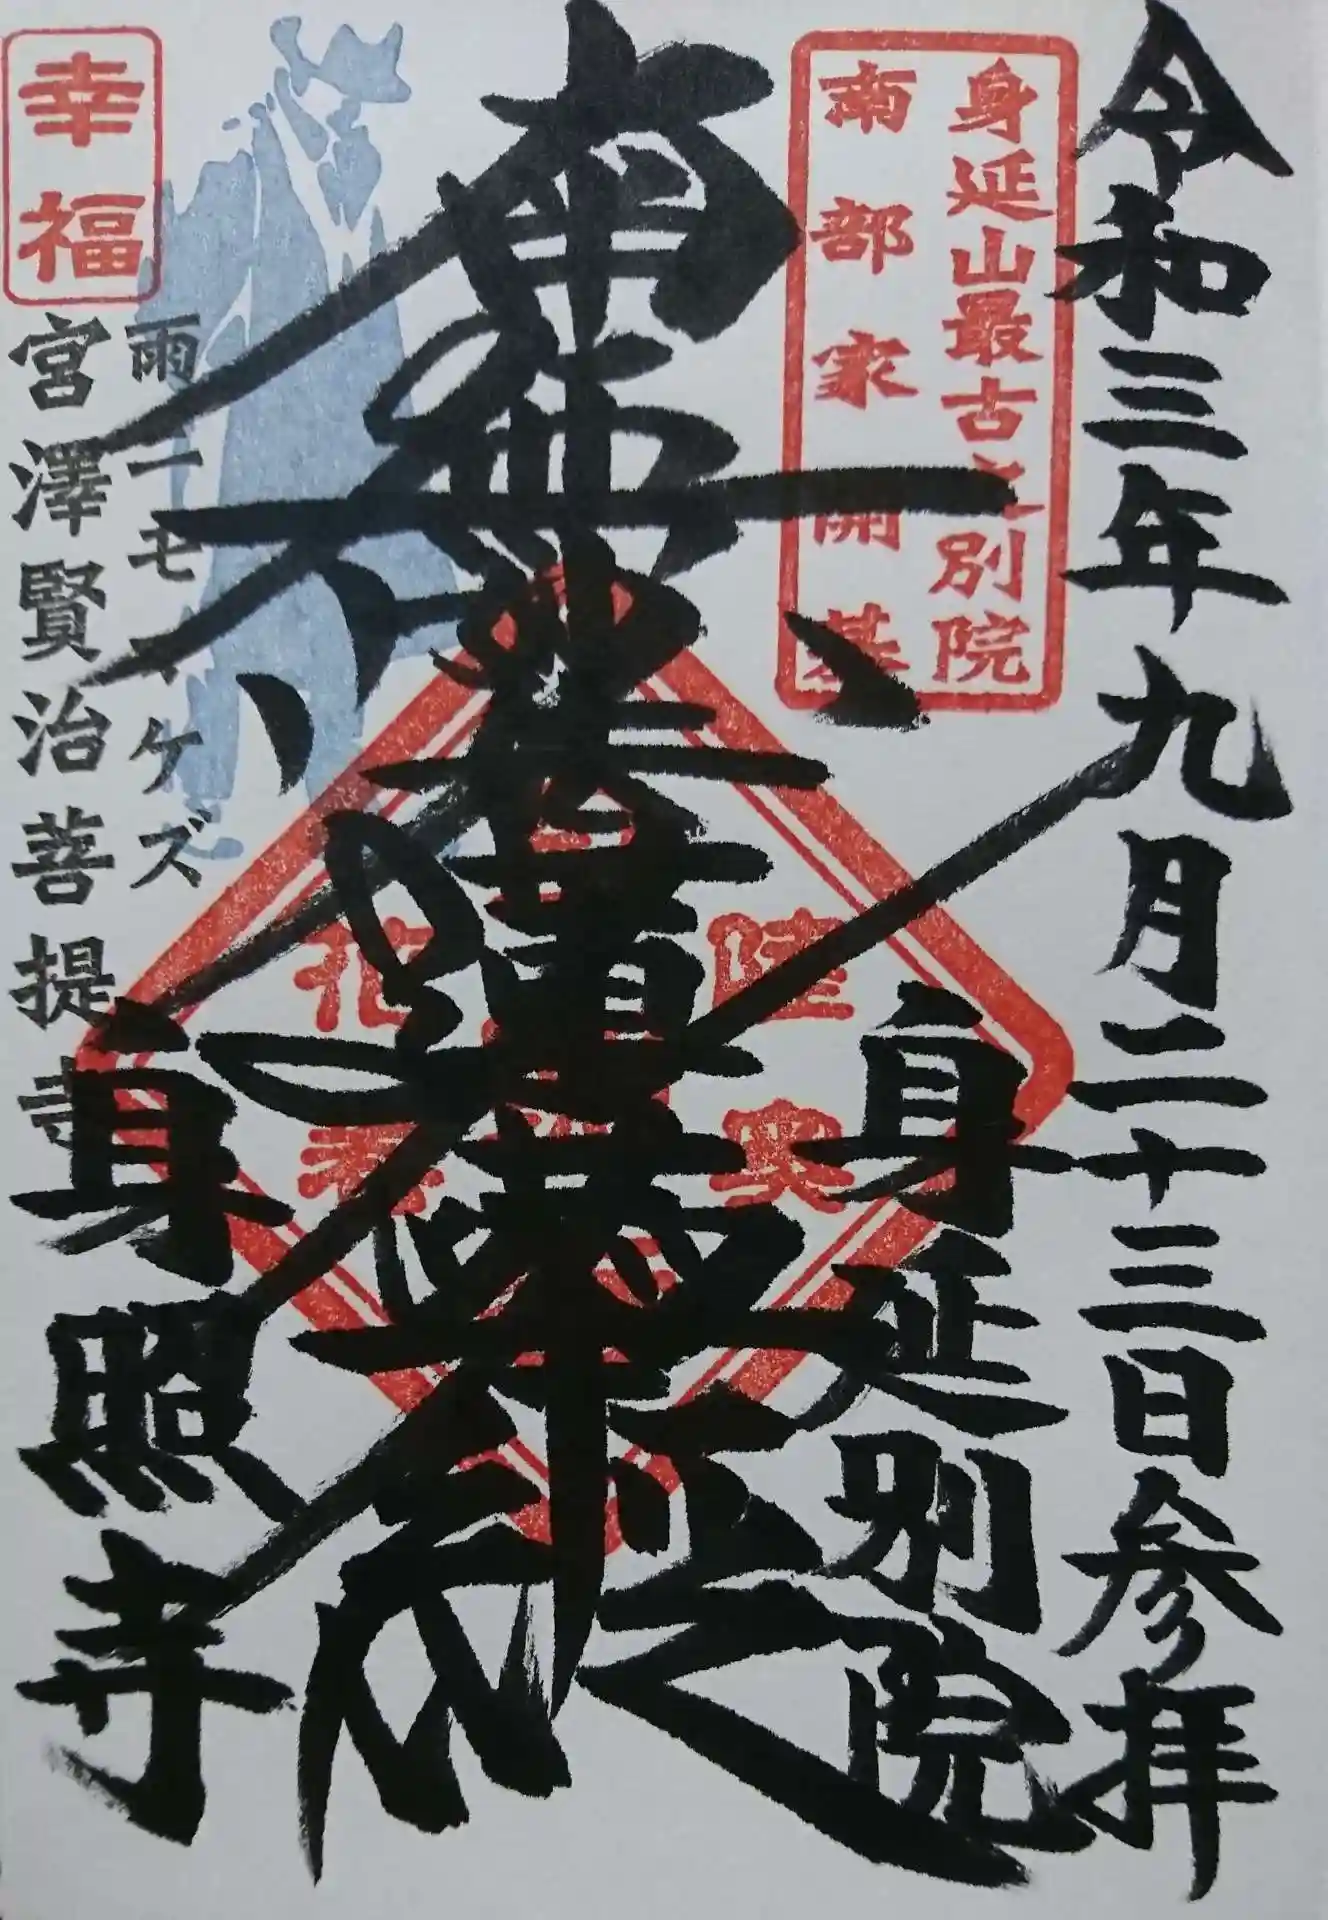 令和三年九月二十三日参拝
身延山最古之別院
南部家開基
身延別院
南無妙法蓮華経
陸奥
花巻
幸福
雨ニモマケズ
宮澤賢治菩提寺
身照寺